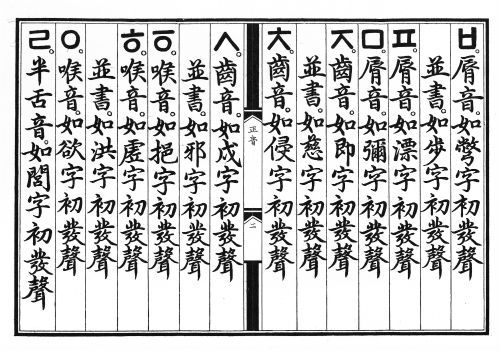 ㅂ。脣音。如彆字初發聲
並書。如步字初發聲
ㅍ。脣音。如漂字初發聲
ㅁ。脣音。如彌字初發聲
ㅈ。齒音。如即字初發聲
並書。如慈字初發聲
ㅊ。齒音。如侵字初發聲
正音
二
ㅅ。齒音。如戌字初發聲
並書。如邪字初發聲
ㆆ。喉音。如挹字初發聲
ㅎ。喉音。如虛字初發聲
並書。如洪字初發聲
ㅇ。喉音。如欲字初發聲
ㄹ。半舌音。如閭字初發聲